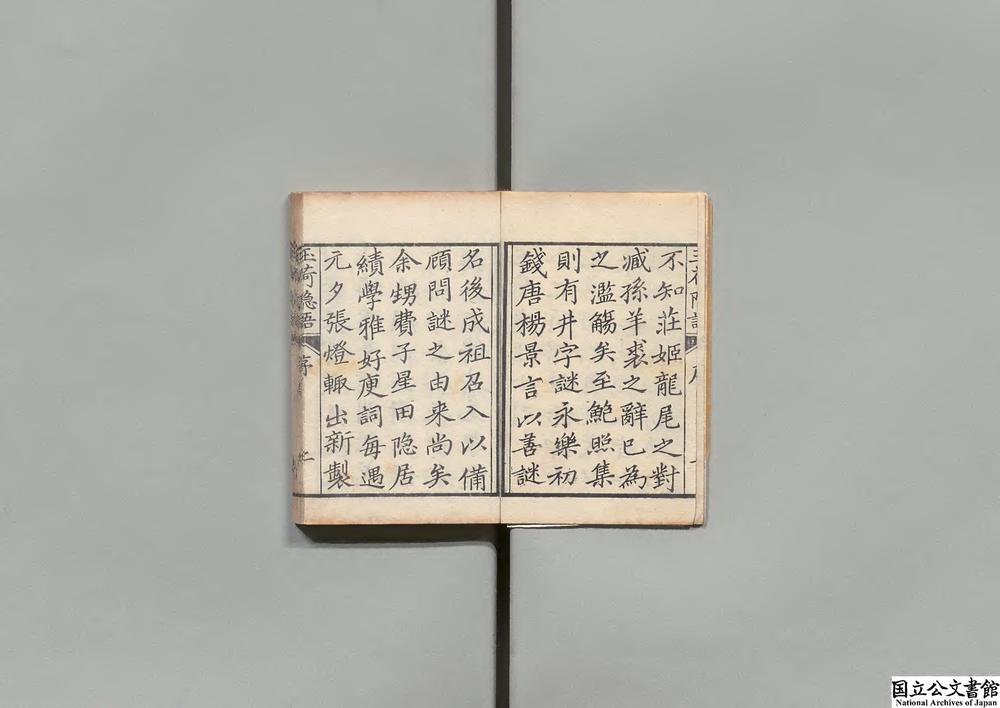 不知莊姬龍尾之對
臧孫羊裘之辭已為
之濫觴矣至鮑照集
則有井字謎永樂初
錢唐楊景言以善謎
名後成祖召入以備
顧問謎之由来尚矣
余甥費子星田隐居
績學雅好庾詞每遇
元夕張燈輙出新製
玉荷隐語
序
国立公文書館
National Archives of Japan